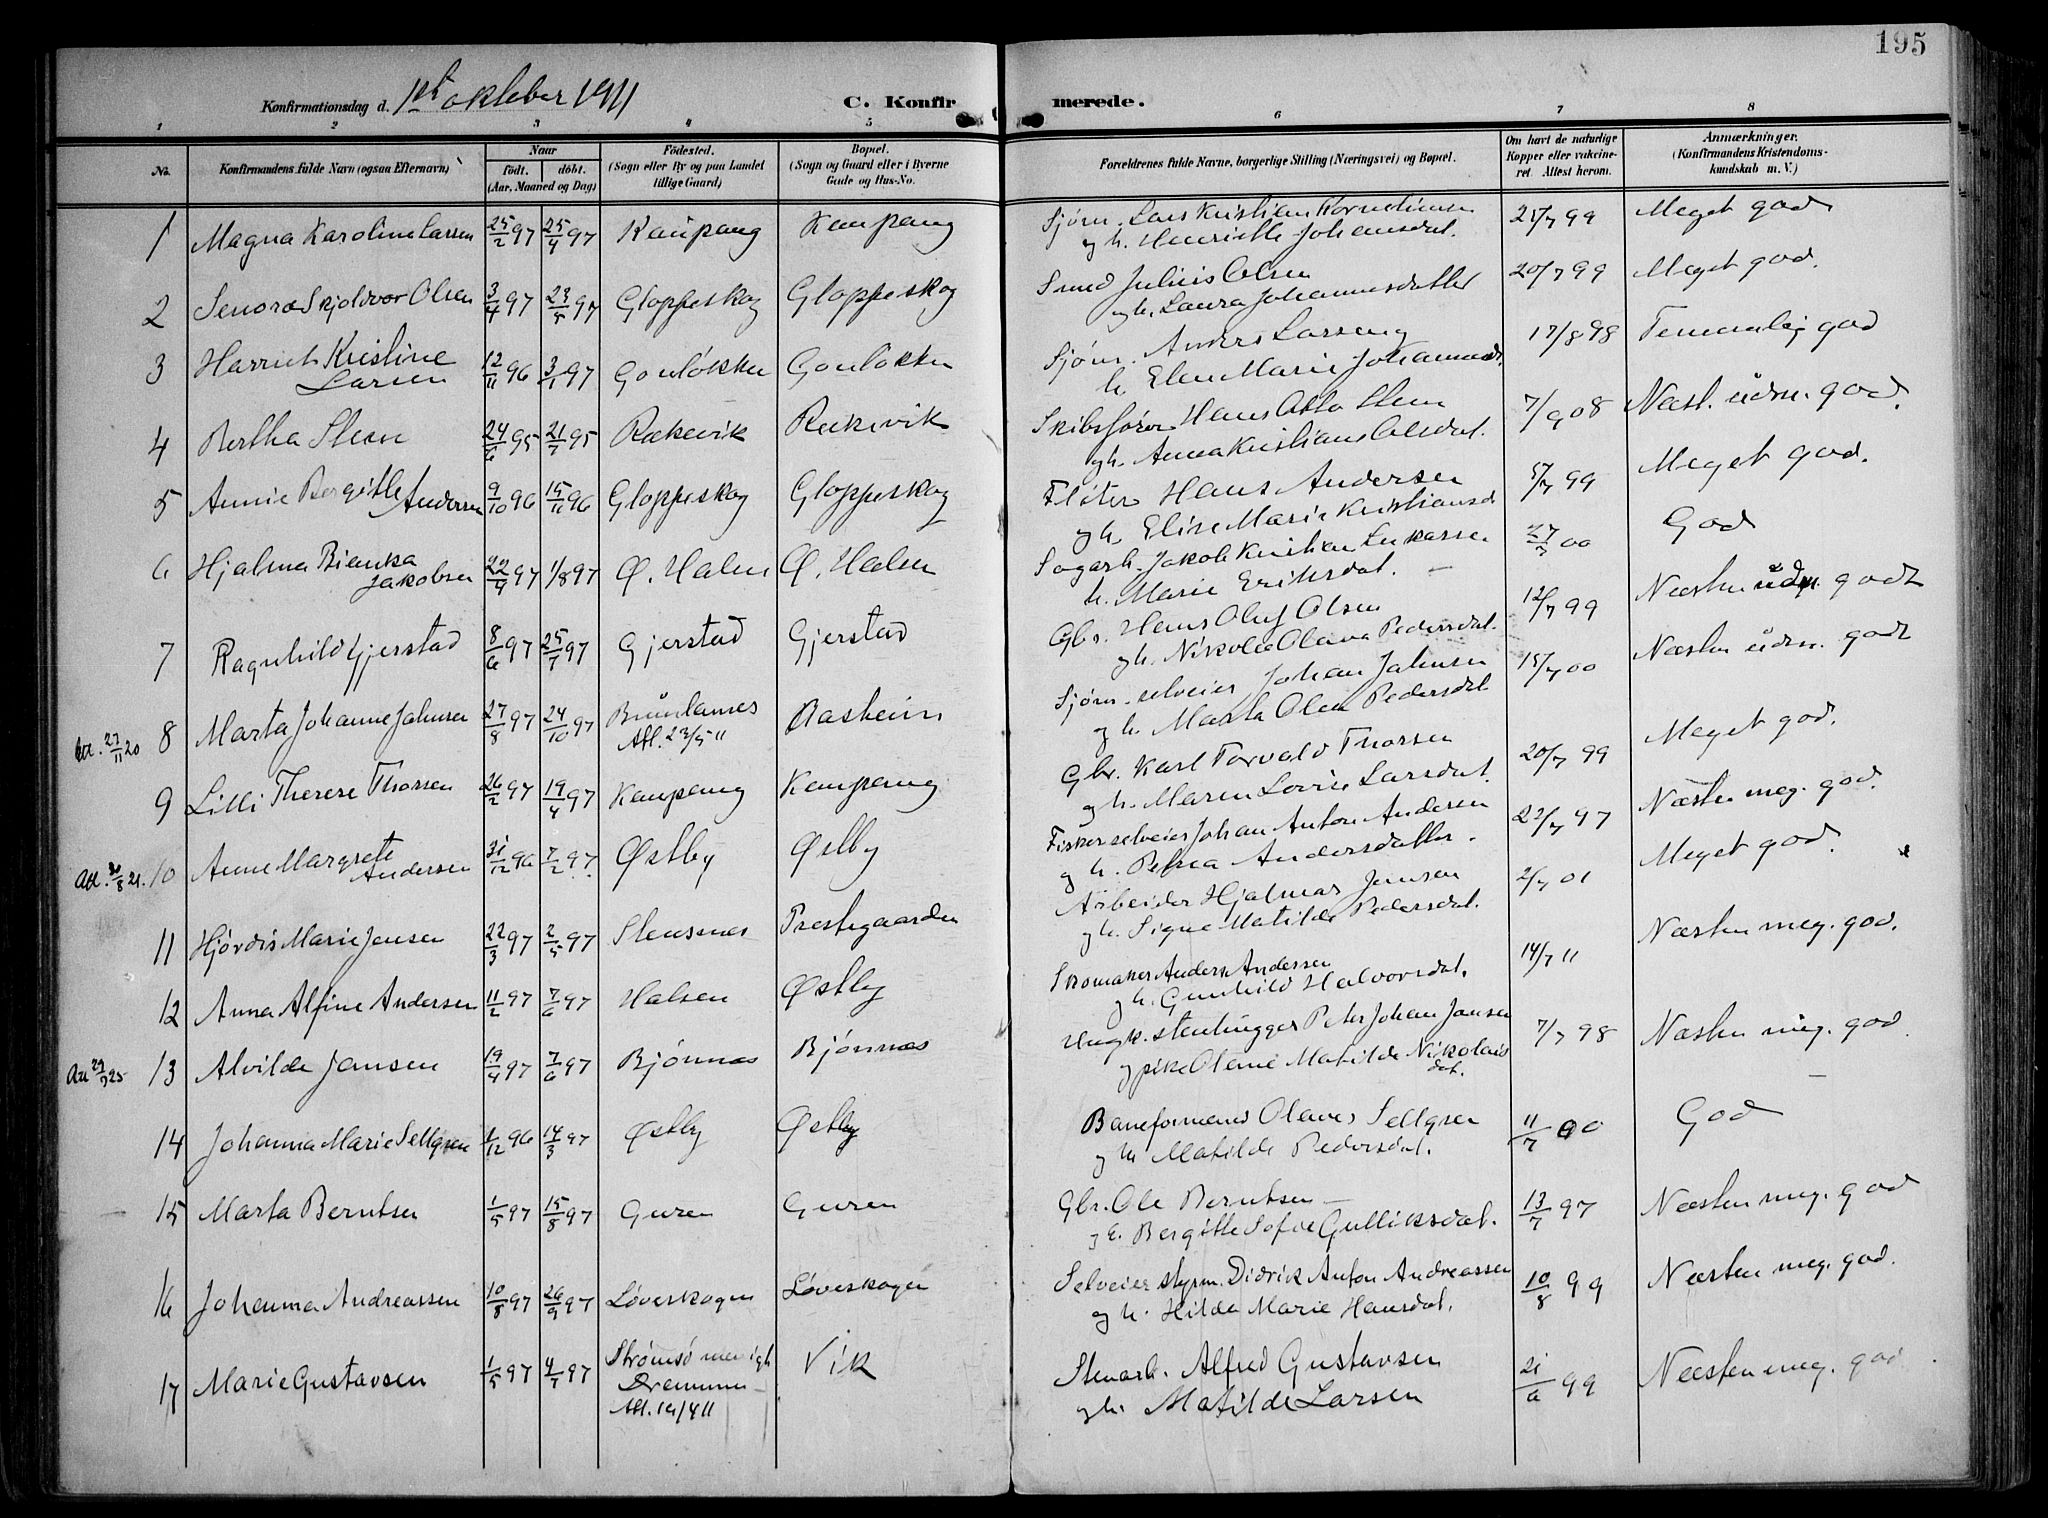 195
Konfirmationsdag d. 1ste oktober 1911
C. Konfirmerede.
1 2 3 4 5 6 7 8
No. Konfirmandens fulde Navn (ogsaa Efternavn) Naar födt. döbt. (Aar, Maaned og Dag) Födested. (Sogn eller By og paa Landet tillige Gaard) Bopæl. (Sogn og Gaard eller i Byerne Gade og Hus-No. Forældrenes fulde Navne, borgerlige Stilling (Næringsvei) og Bopæl. Om havt de naturlige Kopper eller vakcineret. Attest herom. Anmærkninger. (Konfirmandens Kristendomskundskab m. V.)
1 Magna Karoline Larsen 25/2 97 25/4 97 Kaupang Kaupang Sjöm. Lars Kristian Korneliussen
og h. Henriette Johansdat. 21/7 99 Meget god
2 Senora Skjoldvor Olsen 3/4 97 23/5 97 Gloppeskog Gloppeskog Smed Julius Olsen
og h. Laura Johannesdatter 20/7 99 Meget god.
3 Harriet Kristine
Larsen 12/11 96 3/1 97 Gonløkken Gonløkken Sjöm. Anders Larsen og
h. Elen Marie Johannesd. 17/8 98 Temmelig god
4 Bertha Steen 24/6 95 21/7 95 Rækevik Rækevik Skibsfører Hans Otto Steen
og h. Anna Kristians Olsdat. 7/9 08 Næst. üdm. god.
5 Annie Bergitte
Andersen 9/10 96 15/11 96 Gloppeskog Gloppeskog Fløter Hans Andersen
og h. Elise Marie Kristiansd 5/7 99 Meget god.
6 Hjalma Bianka
Jakobsen 22/4 97 1/8 97 Ø. Halen Ø. Halen Sagarb. Jakob Kristian Lukassen
h. Marie Eriksdat. 27/7 00 God
7 Ragnhild Gjerstad 8/6 97 25/7 97 Gjerstad Gjerstad Gbr. Hans Oluf Olsen
og h. Nikolea Olava Pedersdat. 12/7 99 Næsten üdm. godt
Att. 27/11 20 8 Marta Johanne Jahnsen 27/8 97 24/10 97 Brunlanes
Att. 23/5 11 Basheim Sjöm. selveier Johan Jahnsen
og h. Marta Olea Pedersdat. 15/7 00 Næsten üdm. godt
9 Lilli Therese Thorsen 26/2 97 19/4 97 Kaupang Kaupang Gbr. Karl Torvald Thorsen
og h. Maren Lovise Larsdat. 20/7 99 Meget god.
Att. 30/8 21. 10 Anne Margrete
Andersen 31/12 96 7/2 97. Østby Østby Fisker selveier Johan Anton Andersen
og h. Petrea Andersdatter. 22/7 97 Næsten meg. god.
11 Hjördis Marie Jensen 22/3 97 2/5 97 Stensnes Prestegaarden Arbeider Hjalmar Jensen
og h. Signe Matilde Pedersdat. 2/7 01 Meget god.
12 Anna Alfine Andersen 11/2 97 7/6 97 Halsen Østby Skomaker Anders Andersen
og h. Gunhild Halvorsdat. 14/7 11 Næsten meg. god.
Att 29/7 25 13 Alvilde Jansen 19/4 97 7/6 97 Bjönnes Bjönnes Ungk. stenhugger Peter Johan Jansen
og pike Olame Matilde Nikolais
dat. 7/7 98 Næsten meg. god
14 Johanna Marie Sellgren 1/12 96 14/3 97 Østby Østby Baneformend Olaves Sellgren
og h. Matilde Pedersdat. 11/7 00 God
15 Marta Berntsen 1/5 97 15/8 97 Guren Guren Gbr. Ole Berntsen
og h. Bergitte Sofie Gulliksdat. 13/7 97 Næsten meg. god
16 Johanna Andreassen 10/8 97 26/9 97 Løveskogen Løveskogen Selveier styrm. Didrik Anton Andreassen
og h. Hilda Marie Hansdat. 10/8 99 Næsten meg. god.
17 Marie Gustavsen 1/5 97 4/7 97 Strömsö menigh
Drammen
Att. 19/4 11 Vik Stenarb. Alfred Gustavsen
og h. Matilde Larsen 21/6 99 Næsten meg. god